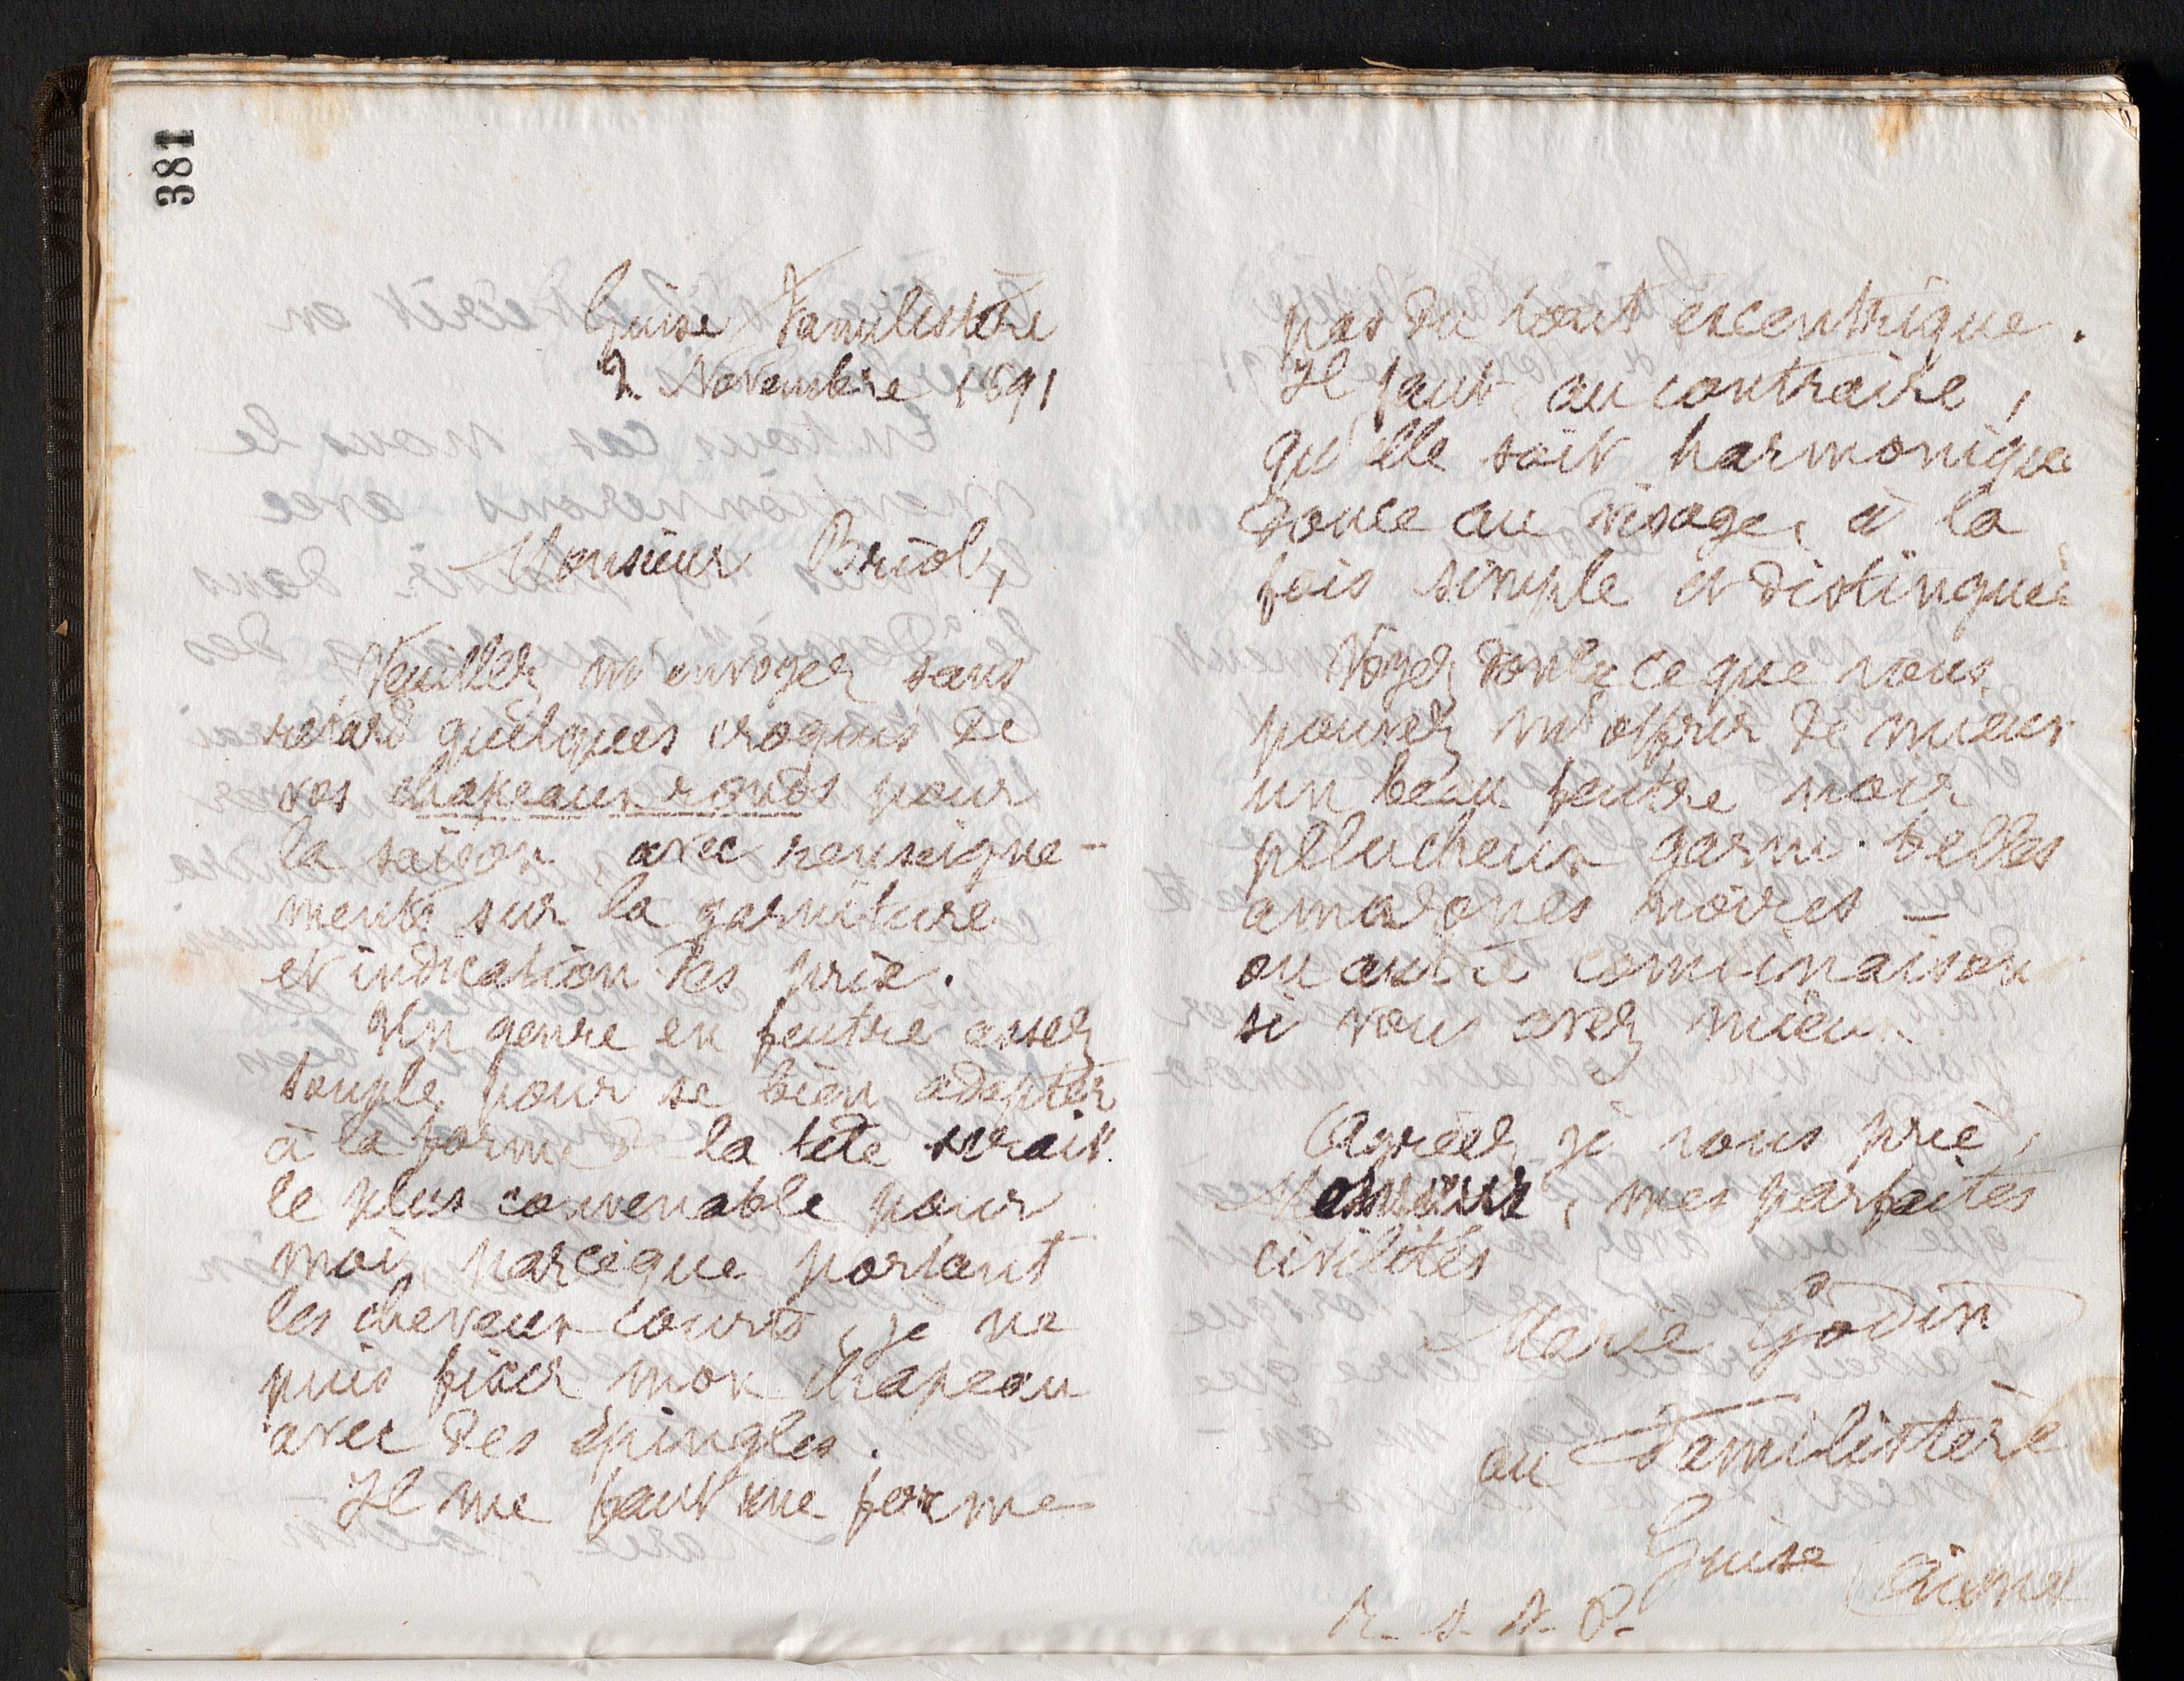 381
Guise Familistère
2 Novembre 1891
Monsieur Briol,
Veuillez m'envoyer sans
retard quelques croquis de
vos chapeaux ronds pour
la saison avec renseigne-
ments sur la garniture
et indication des prix.
Un genre en feutre assez
souple pour se bien adapter
à la forme de la tête serait
le plus convenable pour
moi, parceque portant
les cheveux courts, je ne
puis fixer mon chapeau
avec des épingles.
Il me faut une forme
pas du tout excentrique.
Il faut au contraire,
qu'elle soit harmonique
douce au visage, à la
fois simple et distinguée
Voyez donc ce que vous
pouvez m'offrir de mieux
un beau feutre noir
pelucheux garni belles
amazones noires –
ou autre
si vous avez mieux.
Agréez, je vous prie,
Monsieur, mes parfaites
civilités
Marie Godin
au Familistère
Guise (Aisne)